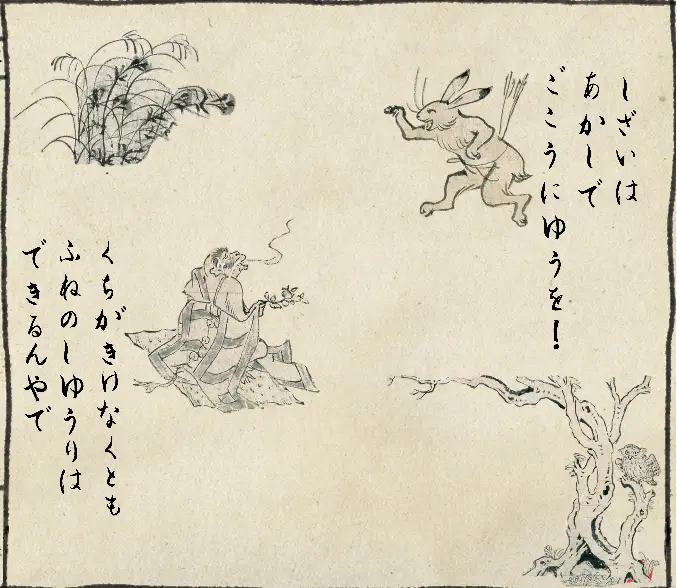 しざいは
あかしで
ごこうにゆうを！
くちがきけなくとも
ふねのしゆうりは
できるんやで